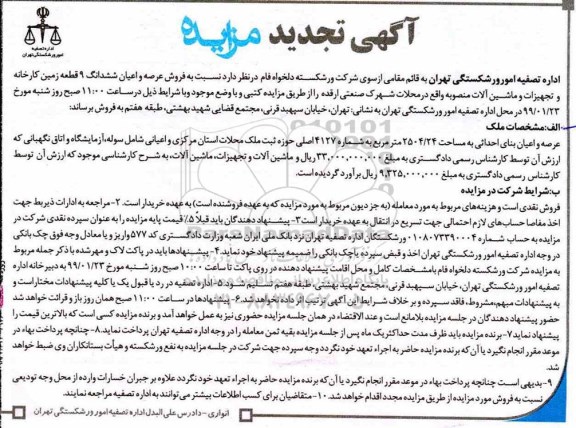 آگهی تجدید مزایده
اداره تصفیه
امور ورشکستگی تهران
اداره تصفیه امور ورشکستگی تهران به قائم مقامی از سوی شرکت ورشکسته دلخواه فام در نظر دارد نسبت به فروش عرصه و اعیان ششدانگ ۹ قطعه زمین کارخانه
و تجهیزات و ماشین آلات منصوبه واقع در محلات شهرک صنعتی ارقده را از طریق مزایده کتبی و با وضع موجود و با شرایط ذیل در ساعت ۱۱:۰۰ صبح روز شنبه مورخ
۹۹/۰۱/۲۳ در محل اداره تصفیه امور ورشکستگی تهران به نشانی: تهران، خیابان سپهبد قرنی، مجتمع قضایی شهید بهشتی، طبقه هفتم به فروش برساند:
الف: مشخصات ملک
عرصه و اعیان بنای احداثی به مساحت ۲۵۰۴/۲۴ متر مربع به شماره ۴۱۲۷ اصلی حوزه ثبت ملک محلات استان مرکزی و اعیانی شامل سوله، آزمایشگاه و اتاق نگهبانی که
ارزش آن توسط کارشناس رسمی دادگستری به مبلغ ۳۳,۰۰۰,۰۰۰,۰۰۰ ریال و ماشین آلات و تجهیزات، ماشین آلات، به شرح کارشناسی موجود که ارزش آن توسط
کارشناس رسمی دادگستری به مبلغ ۹,۳۲۵,۰۰۰,۰۰۰ ریال برآورد گردیده است.
ب: شرایط شرکت در مزایده
فروش نقدی است و هزینه‌های مربوط به مورد معامله (به جز دیون مربوط به مورد مزایده که به عهده فروشنده است) به عهده خریدار است. ۲-مراجعه به ادارات ذیربط جهت
اخذ مفاصا حساب‌های لازم احتمالی جهت تسریع در انتقال به عهده خریدار است ۳- پیشنهاد دهندگان باید قبلاً ۵٪ قیمت پایه مزایده را به عنوان سپرده نقدی شرکت در
مزایده به حساب شماره ۰۱۰۸۰۷۳۳۹۰۰۴ ورشکستگان اداره تصفیه تهران نزد بانک ملی ایران شعبه وزارت دادگستری کد ۵۷۷ واریز و یا معادل وجه فوق چک بانکی
در وجه اداره تصفیه امور ورشکستگی تهران اخذ و قبض سپرده یا چک بانکی را ضمیمه پیشنهاد خود نماید. ۴- پیشنهادها باید در پاکت لاک و مهر شده با ذکر جمله مربوط
به مزایده شرکت ورشکسته دلخواه فام با مشخصات کامل و محل اقامت پیشنهاد دهنده در روی پاکت تا ساعت ۱۰:۰۰ صبح روز شنبه مورخ ۹۹/۰۱/۲۳ به دبیرخانه اداره
تصفیه امور ورشکستگی تهران، خیابان سپهبد قرنی، مجتمع شهید بهشتی، طبقه هفتم تسلیم شود ۵- اداره تصفیه در رد یا قبول یک یا کلیه پیشنهادات مختار است و
به پیشنهادات مبهم، مشروط، فاقد سپرده و بر خلاف شرایط این آگهی ترتیب اثر داده نخواهد شد. ۶- پیشنهادها در ساعت ۱۱:۰۰ صبح همان روز باز و قرائت خواهد شد
حضور پیشنهاد دهندگان در جلسه مزایده بلامانع است و عند الاقتضاء در همان جلسه مزایده حضوری نیز به عمل خواهد آمد و برنده مزایده کسی است که بالاترین قیمت را
پیشنهاد نماید ۷- برنده مزایده باید ظرف مدت حداکثر یک ماه پس از جلسه مزایده بقیه ثمن معامله را در وجه اداره تصفیه تهران پرداخت نماید. ۸- چنانچه پرداخت بهاء در
موعد مقرر انجام نگیرد یا آن که برنده مزایده حاضر به اجراء تعهد خود نگردد وجه سپرده جهت شرکت در جلسه مزایده به نفع ورشکسته و هیأت بستانکاران وی ضبط خواهد
شد.
۹- بدیهی است چنانچه پرداخت بهاء در موعد مقرر انجام نگیرد یا آن که برنده مزایده حاضر به اجراء تعهد خود نگردد علاوه بر جبران خسارات وارده از محل وجه تودیعی
نسبت به فروش مورد مزایده از طریق مزایده مجدد اقدام خواهد شد. ۱۰- متقاضیان برای کسب اطلاعات بیشتر می‌توانند به اداره تصفیه مراجعه نمایند.
انواری - دادرس علی البدل اداره تصفیه امور ورشکستگی تهران